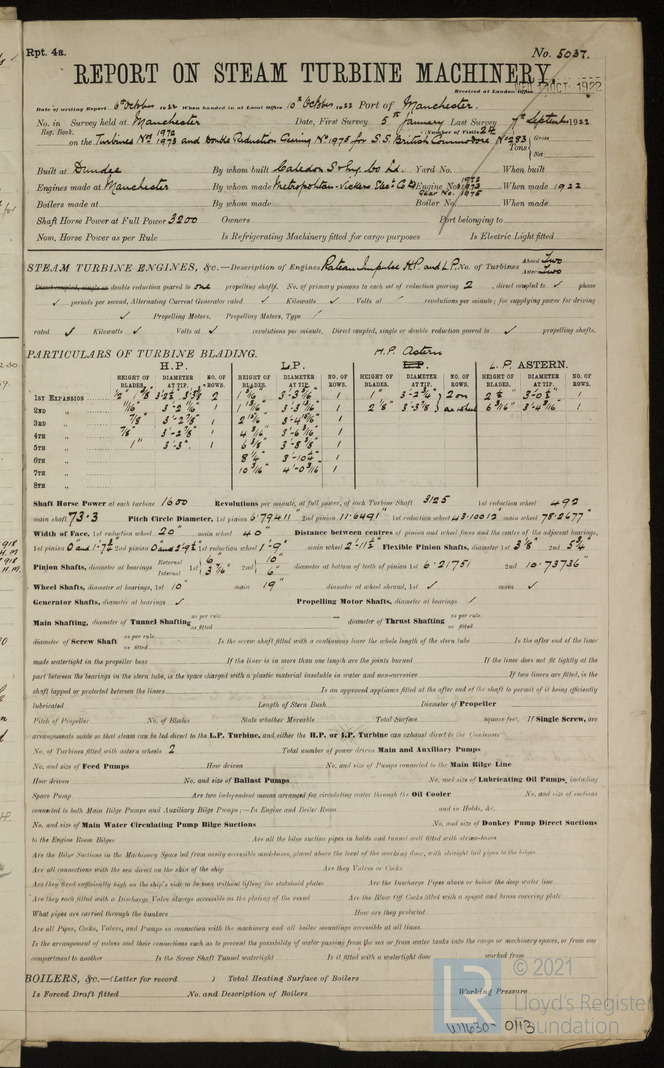 Rpt. 4a.
No. 5037.
REPORT ON STEAM TURBINE MACHINERY.
Received at London Office WED 11 OCT 1922
Date of writing Report 6th October 1922 When handed in at Local Office 10th October 1922 Port of Manchester.
No. in Survey held at Manchester Date, First Survey 5th January Last Survey 7th September 1922
Reg. Book. (Number of Visits 24
on the Turbines Nos 1972 1973 and Double Reduction Gearing No 1975 for S.S. British Commodore No 283 Tons Gross Net
Built at Dundee By whom built Caledon S & Eng. Co Ld. Yard No. When built
Engines made at Manchester By whom made Metropolitan-Vickers Elec. Co Ld Engine Nos 1972 1973 Gear No. 1975 When made 1922
Boilers made at By whom made Boiler No. When made
Shaft Horse Power at Full Power 3200 Owners Port belonging to
Nom. Horse Power as per Rule Is Refrigerating Machinery fitted for cargo purposes Is Electric Light fitted
STEAM TURBINE ENGINES, &c.—Description of Engines Rateau Impulse H.P. and L.P. No. of Turbines Ahead Two Astern Two
Direct coupled, single or double reduction geared to one propelling shafts. No. of primary pinions to each set of reduction gearing 2, direct coupled to ✓ phase
✓ periods per second, Alternating Current Generator rated ✓ Kilowatts ✓ Volts at / revolutions per minute; for supplying power for driving
✓ Propelling Motors, Propelling Motors, Type /
rated ✓ Kilowatts ✓ Volts at ✓ revolutions per minute. Direct coupled, single or double reduction geared to ✓ propelling shafts.
PARTICULARS OF TURBINE BLADING.
H.P. L.P. H.P. Astern L.P. ASTERN.
HEIGHT OF BLADES. DIAMETER AT TIP. NO. OF ROWS. HEIGHT OF BLADES. DIAMETER AT TIP. NO. OF ROWS. HEIGHT OF BLADES. DIAMETER AT TIP. NO. OF ROWS. HEIGHT OF BLADES. DIAMETER AT TIP. NO. OF ROWS.
1ST EXPANSION 2 1 1" 2 on 1
2ND „ 1 1 one wheel 1
3RD „ 7/8" 1 1
4TH „ 7/8" 1 1
5TH „ 1" 3'-3" 1 1
6TH „ 1
7TH „ 1
8TH „
Shaft Horse Power at each turbine 1600 Revolutions per minute, at full power, of each Turbine Shaft 3125 1st reduction wheel 492
main shaft 73.3 Pitch Circle Diameter, 1st pinion 6.79411" 2nd pinion 11.6491" 1st reduction wheel 43.10012" main wheel 78.2677"
Width of Face, 1st reduction wheel 20" main wheel 40" Distance between centres of pinion and wheel faces and the centre of the adjacent bearings,
1st pinion 0" and 2nd pinion 0" and 1st reduction wheel 1'-9" main wheel 2'-11½" Flexible Pinion Shafts, diameter 1st 3⅛" 2nd 5¾"
Pinion Shafts, diameter at bearings External Internal 1st 6" 3 7/16" 2nd 10" 6" diameter at bottom of teeth of pinion 1st 6.21751 2nd 10.73736"
Wheel Shafts, diameter at bearings, 1st 10" main 19" diameter at wheel shroud, 1st ✓ main ✓
Generator Shafts, diameter at bearings ✓ Propelling Motor Shafts, diameter at bearings /
Main Shafting, diameter of Tunnel Shafting as per rule as fitted — diameter of Thrust Shafting as per rule as fitted
diameter of Screw Shaft as per rule as fitted Is the screw shaft fitted with a continuous liner the whole length of the stern tube Is the after end of the liner
made watertight in the propeller boss If the liner is in more than one length are the joints burned If the liner does not fit tightly at the
part between the bearings in the stern tube, is the space charged with a plastic material insoluble in water and non-corrosive If two liners are fitted, is the
shaft lapped or protected between the liners Is an approved appliance fitted at the after end of the shaft to permit of it being efficiently
lubricated Length of Stern Bush Diameter of Propeller
Pitch of Propeller No. of Blades State whether Moveable Total Surface square feet. If Single Screw, are
arrangements made so that steam can be led direct to the L.P. Turbine, and either the H.P. or L.P. Turbine can exhaust direct to the Condenser
No. of Turbines fitted with astern wheels 2 Total number of power driven Main and Auxiliary Pumps
No. and size of Feed Pumps How driven No. and size of Pumps connected to the Main Bilge Line
How driven No. and size of Ballast Pumps No. and size of Lubricating Oil Pumps, including
Spare Pump Are two independent means arranged for circulating water through the Oil Cooler No. and size of suctions
connected to both Main Bilge Pumps and Auxiliary Bilge Pumps;—In Engine and Boiler Room and in Holds, &c.
No. and size of Main Water Circulating Pump Bilge Suctions No. and size of Donkey Pump Direct Suctions
to the Engine Room Bilges Are all the bilge suction pipes in holds and tunnel well fitted with strum-boxes
Are the Bilge Suctions in the Machinery Space led from easily accessible mud-boxes, placed above the level of the working floor, with straight tail pipes to the bilges
Are all connections with the sea direct on the skin of the ship Are they Valves or Cocks
Are they fixed sufficiently high on the ship's side to be seen without lifting the stokehold plates Are the Discharge Pipes above or below the deep water line
Are they each fitted with a Discharge Valve always accessible on the plating of the vessel Are the Blow Off Cocks fitted with a spigot and brass covering plate
What pipes are carried through the bunkers How are they protected
Are all Pipes, Cocks, Valves, and Pumps in connection with the machinery and all boiler mountings accessible at all times
Is the arrangement of valves and their connections such as to prevent the possibility of water passing from the sea or from water tanks into the cargo or machinery spaces, or from one
compartment to another Is the Screw Shaft Tunnel watertight Is it fitted with a watertight door worked from
BOILERS, &c.—(Letter for record ) Total Heating Surface of Boilers
Is Forced Draft fitted No. and Description of Boilers Working Pressure
© 2021
LR
Lloyd's Register
Foundation
W1630-0113